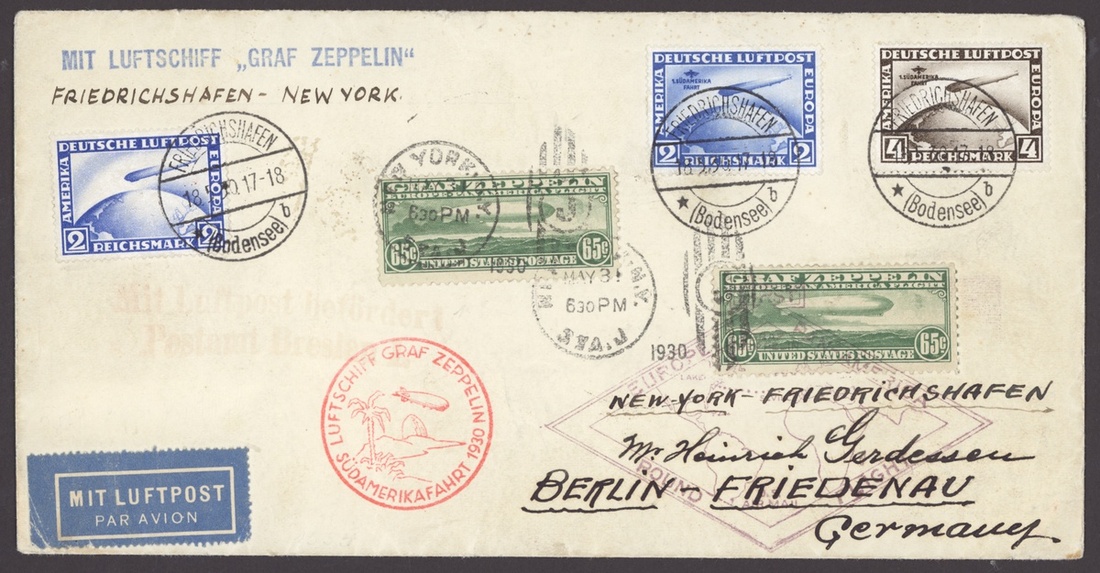 MIT LUFTSCHIFF „GRAF ZEPPELIN“
FRIEDRICHSHAFEN - NEW YORK.
DEUTSCHE LUFTPOST
AMERIKA
EUROPA
2 REICHSMARK 2
FRIEDRICHSHAFEN
18.5.30.17-18
* (Bodensee) b
DEUTSCHE LUFTPOST
AMERIKA
EUROPA
1. SÜDAMERIKA
FAHRT
2 REICHSMARK 2
FRIEDRICHSHAFEN
18.5.30.17-18
* (Bodensee) b
DEUTSCHE LUFTPOST
AMERIKA
EUROPA
1. SÜDAMERIKA
FAHRT
4 REICHSMARK 4
FRIEDRICHSHAFEN
17-18
* (Bodensee) b
GRAF ZEPPELIN
EUROPE PAN AMERICA FLIGHT
65¢ UNITED STATES POSTAGE 65¢
630 PM
1930
MAY 31
630 PM
1930
GRAF ZEPPELIN
EUROPE PAN AMERICA FLIGHT
65¢ UNITED STATES POSTAGE 65¢
Mit Luftpost befördert
Postamt
LUFTSCHIFF GRAF ZEPPELIN
SÜDAMERIKAFAHRT 1930
NEW-YORK - FRIEDRICHSHAFEN
Mr. Heinrich Gerdessen
BERLIN - FRIEDENAU
Germany.
ROUND
MIT LUFTPOST
PAR AVION